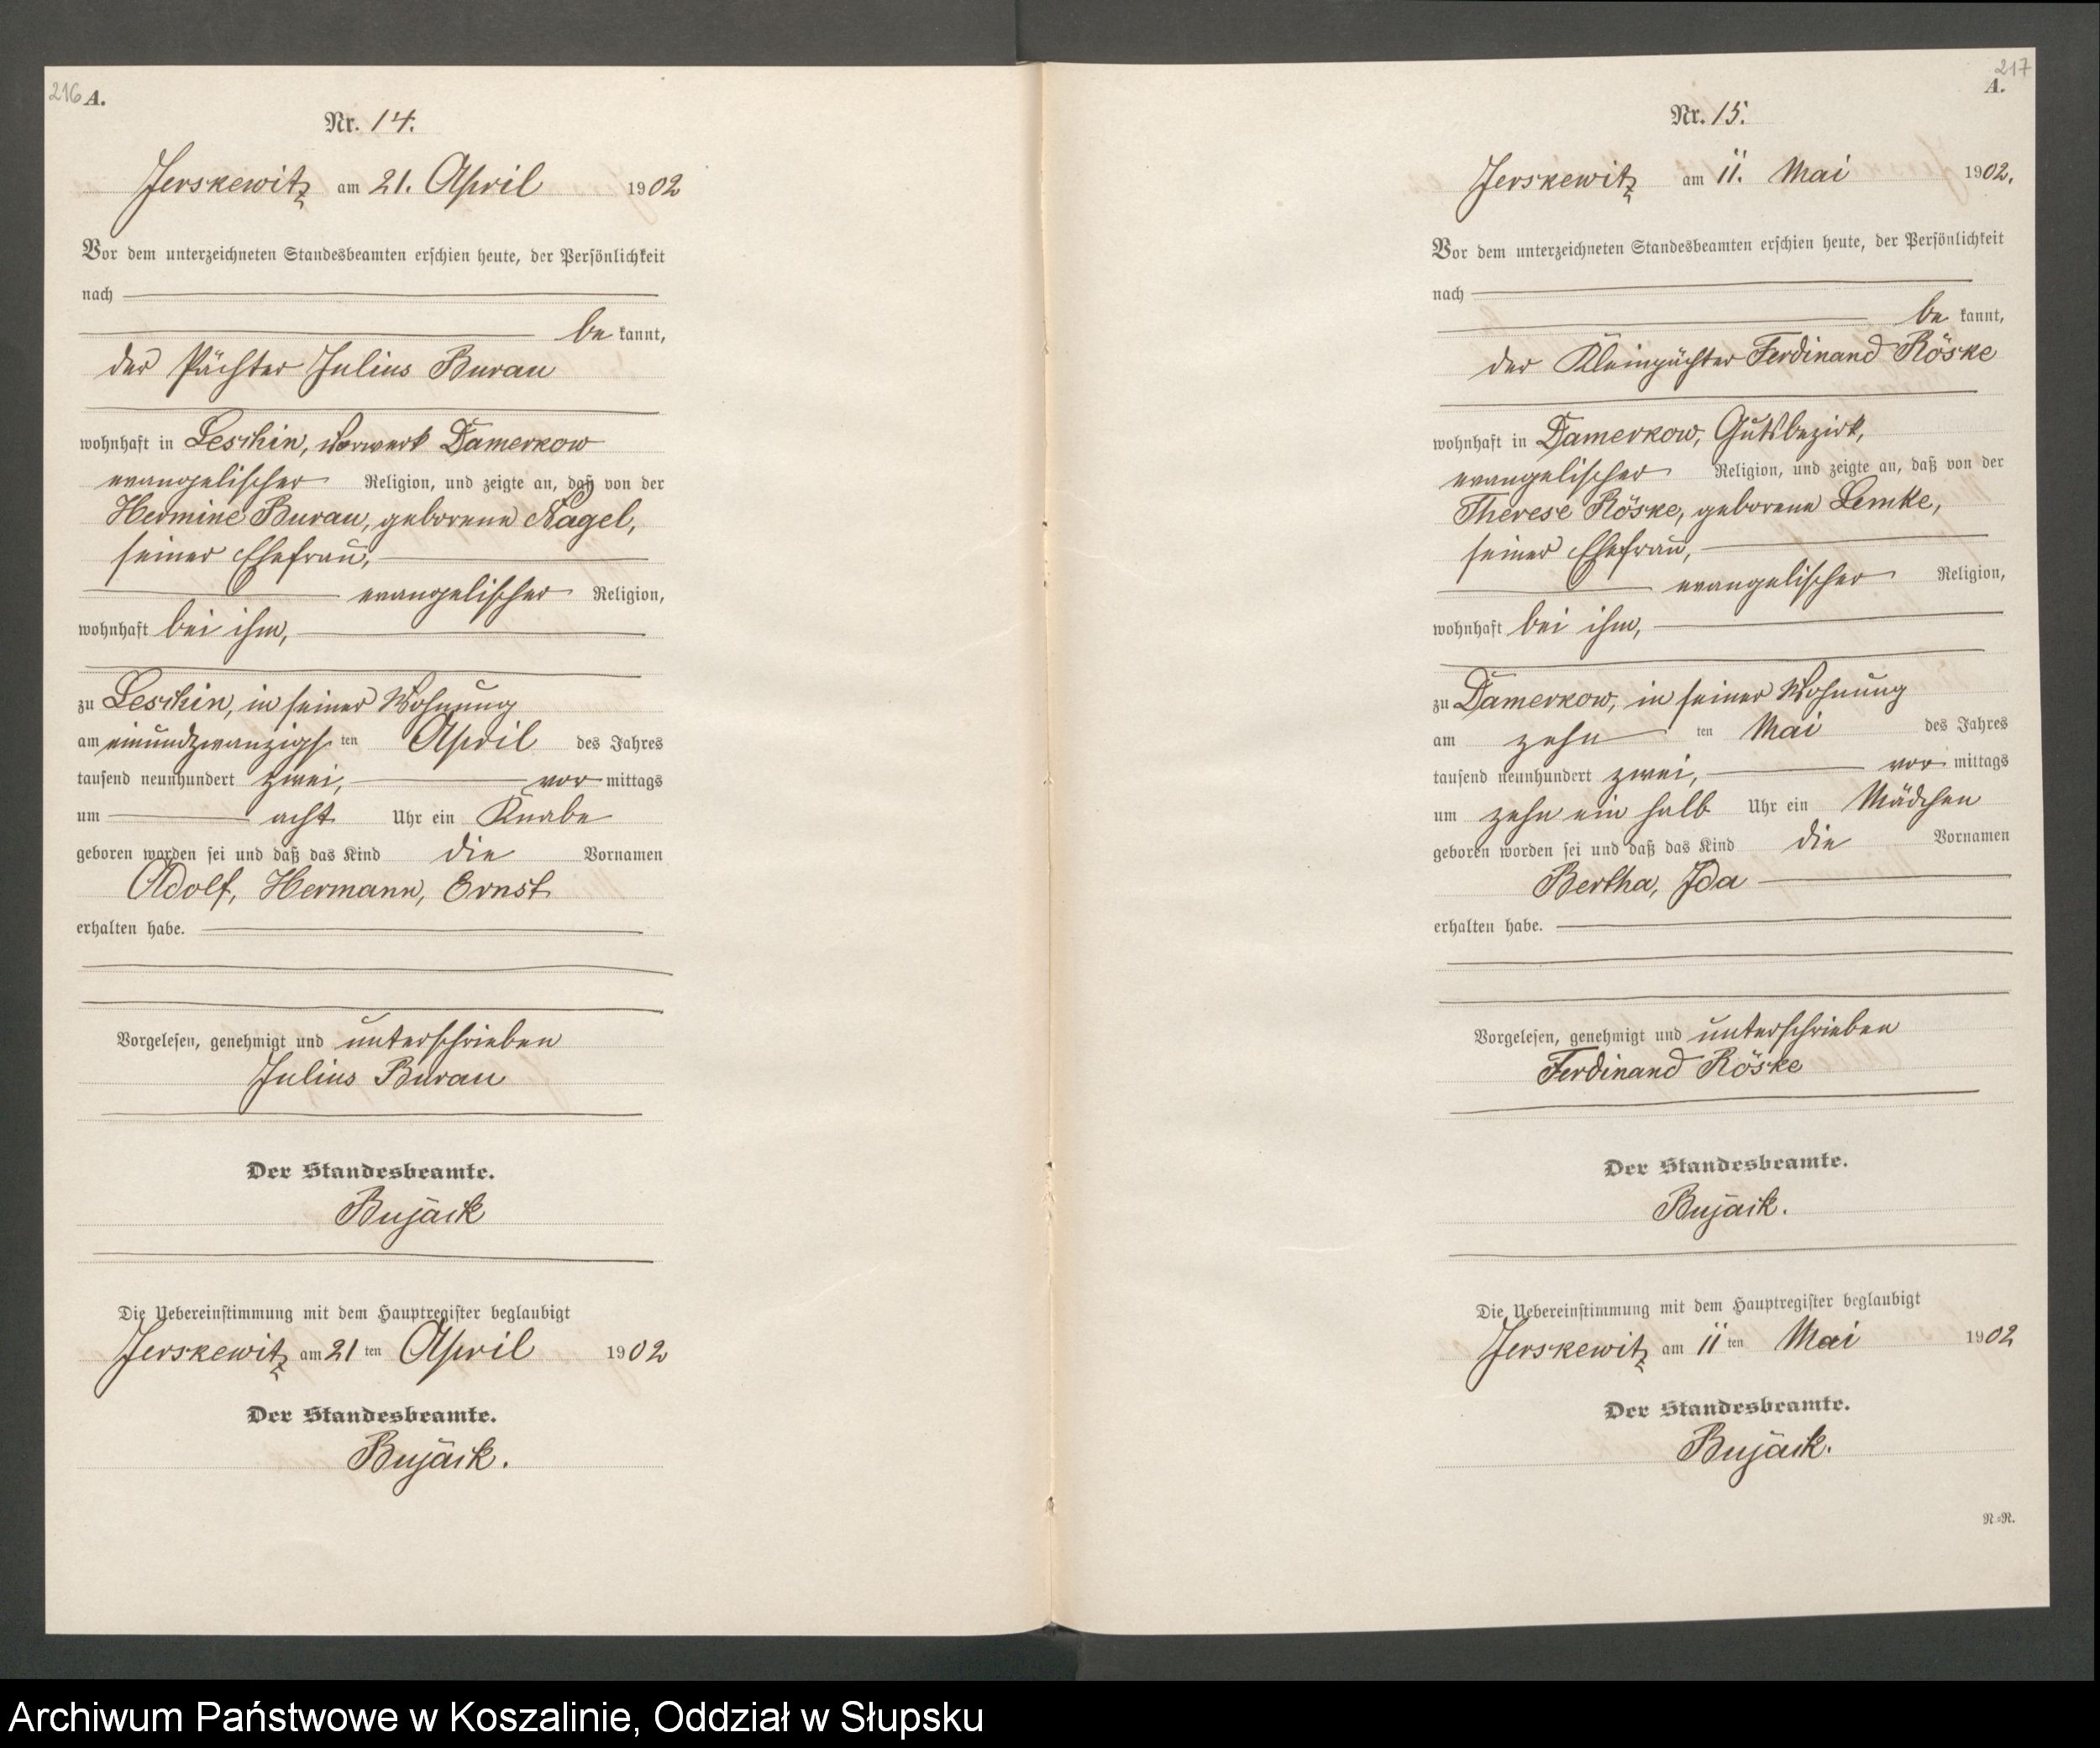 216 A.
Nr. 14.
Jerskewitz am 21. April 1902
Vor dem unterzeichneten Standesbeamten erschien heute, der Persönlichkeit
nach
be kannt,
der Pächter Julius Burau
wohnhaft in Leschin, Vorwerk Damerkow
evangelischer Religion, und zeigte an, daß von der
Hermine Burau, geborene Nagel,
seiner Ehefrau,
evangelischer Religion,
wohnhaft bei ihm,
zu Leschin, in seiner Wohnung
am einundzwanzigs ten April des Jahres
tausend neunhundert zwei, vor mittags
um acht Uhr ein Knabe
geboren worden sei und daß das Kind die Vornamen
Adolf, Hermann, Ernst
erhalten habe.
Vorgelesen, genehmigt und unterschrieben
Julius Burau
Der Standesbeamte.
Bujack
Die Uebereinstimmung mit dem Hauptregister beglaubigt
Jerskewitz am 21 ten April 1902
Der Standesbeamte.
Bujack.
217
A.
Nr. 15.
Jerskewitz am 11. Mai 1902.
Vor dem unterzeichneten Standesbeamten erschien heute, der Persönlichkeit
nach
be kannt,
der Kleinpächter Ferdinand Röske
wohnhaft in Damerkow, Gutsbezirk,
evangelischer Religion, und zeigte an, daß von der
Therese Röske, geborene Lemke,
seiner Ehefrau,
evangelischer Religion,
wohnhaft bei ihm,
zu Damerkow, in seiner Wohnung
am zehn ten Mai des Jahres
tausend neunhundert zwei, vor mittags
um zehn ein halb Uhr ein Mädchen
geboren worden sei und daß das Kind die Vornamen
Bertha, Ida
erhalten habe.
Vorgelesen, genehmigt und unterschrieben
Ferdinand Röske
Der Standesbeamte.
Bujack.
Die Uebereinstimmung mit dem Hauptregister beglaubigt
Jerskewitz am 11 ten Mai 1902
Der Standesbeamte.
Bujack.
R=R.
Archiwum Państwowe w Koszalinie, Oddział w Słupsku